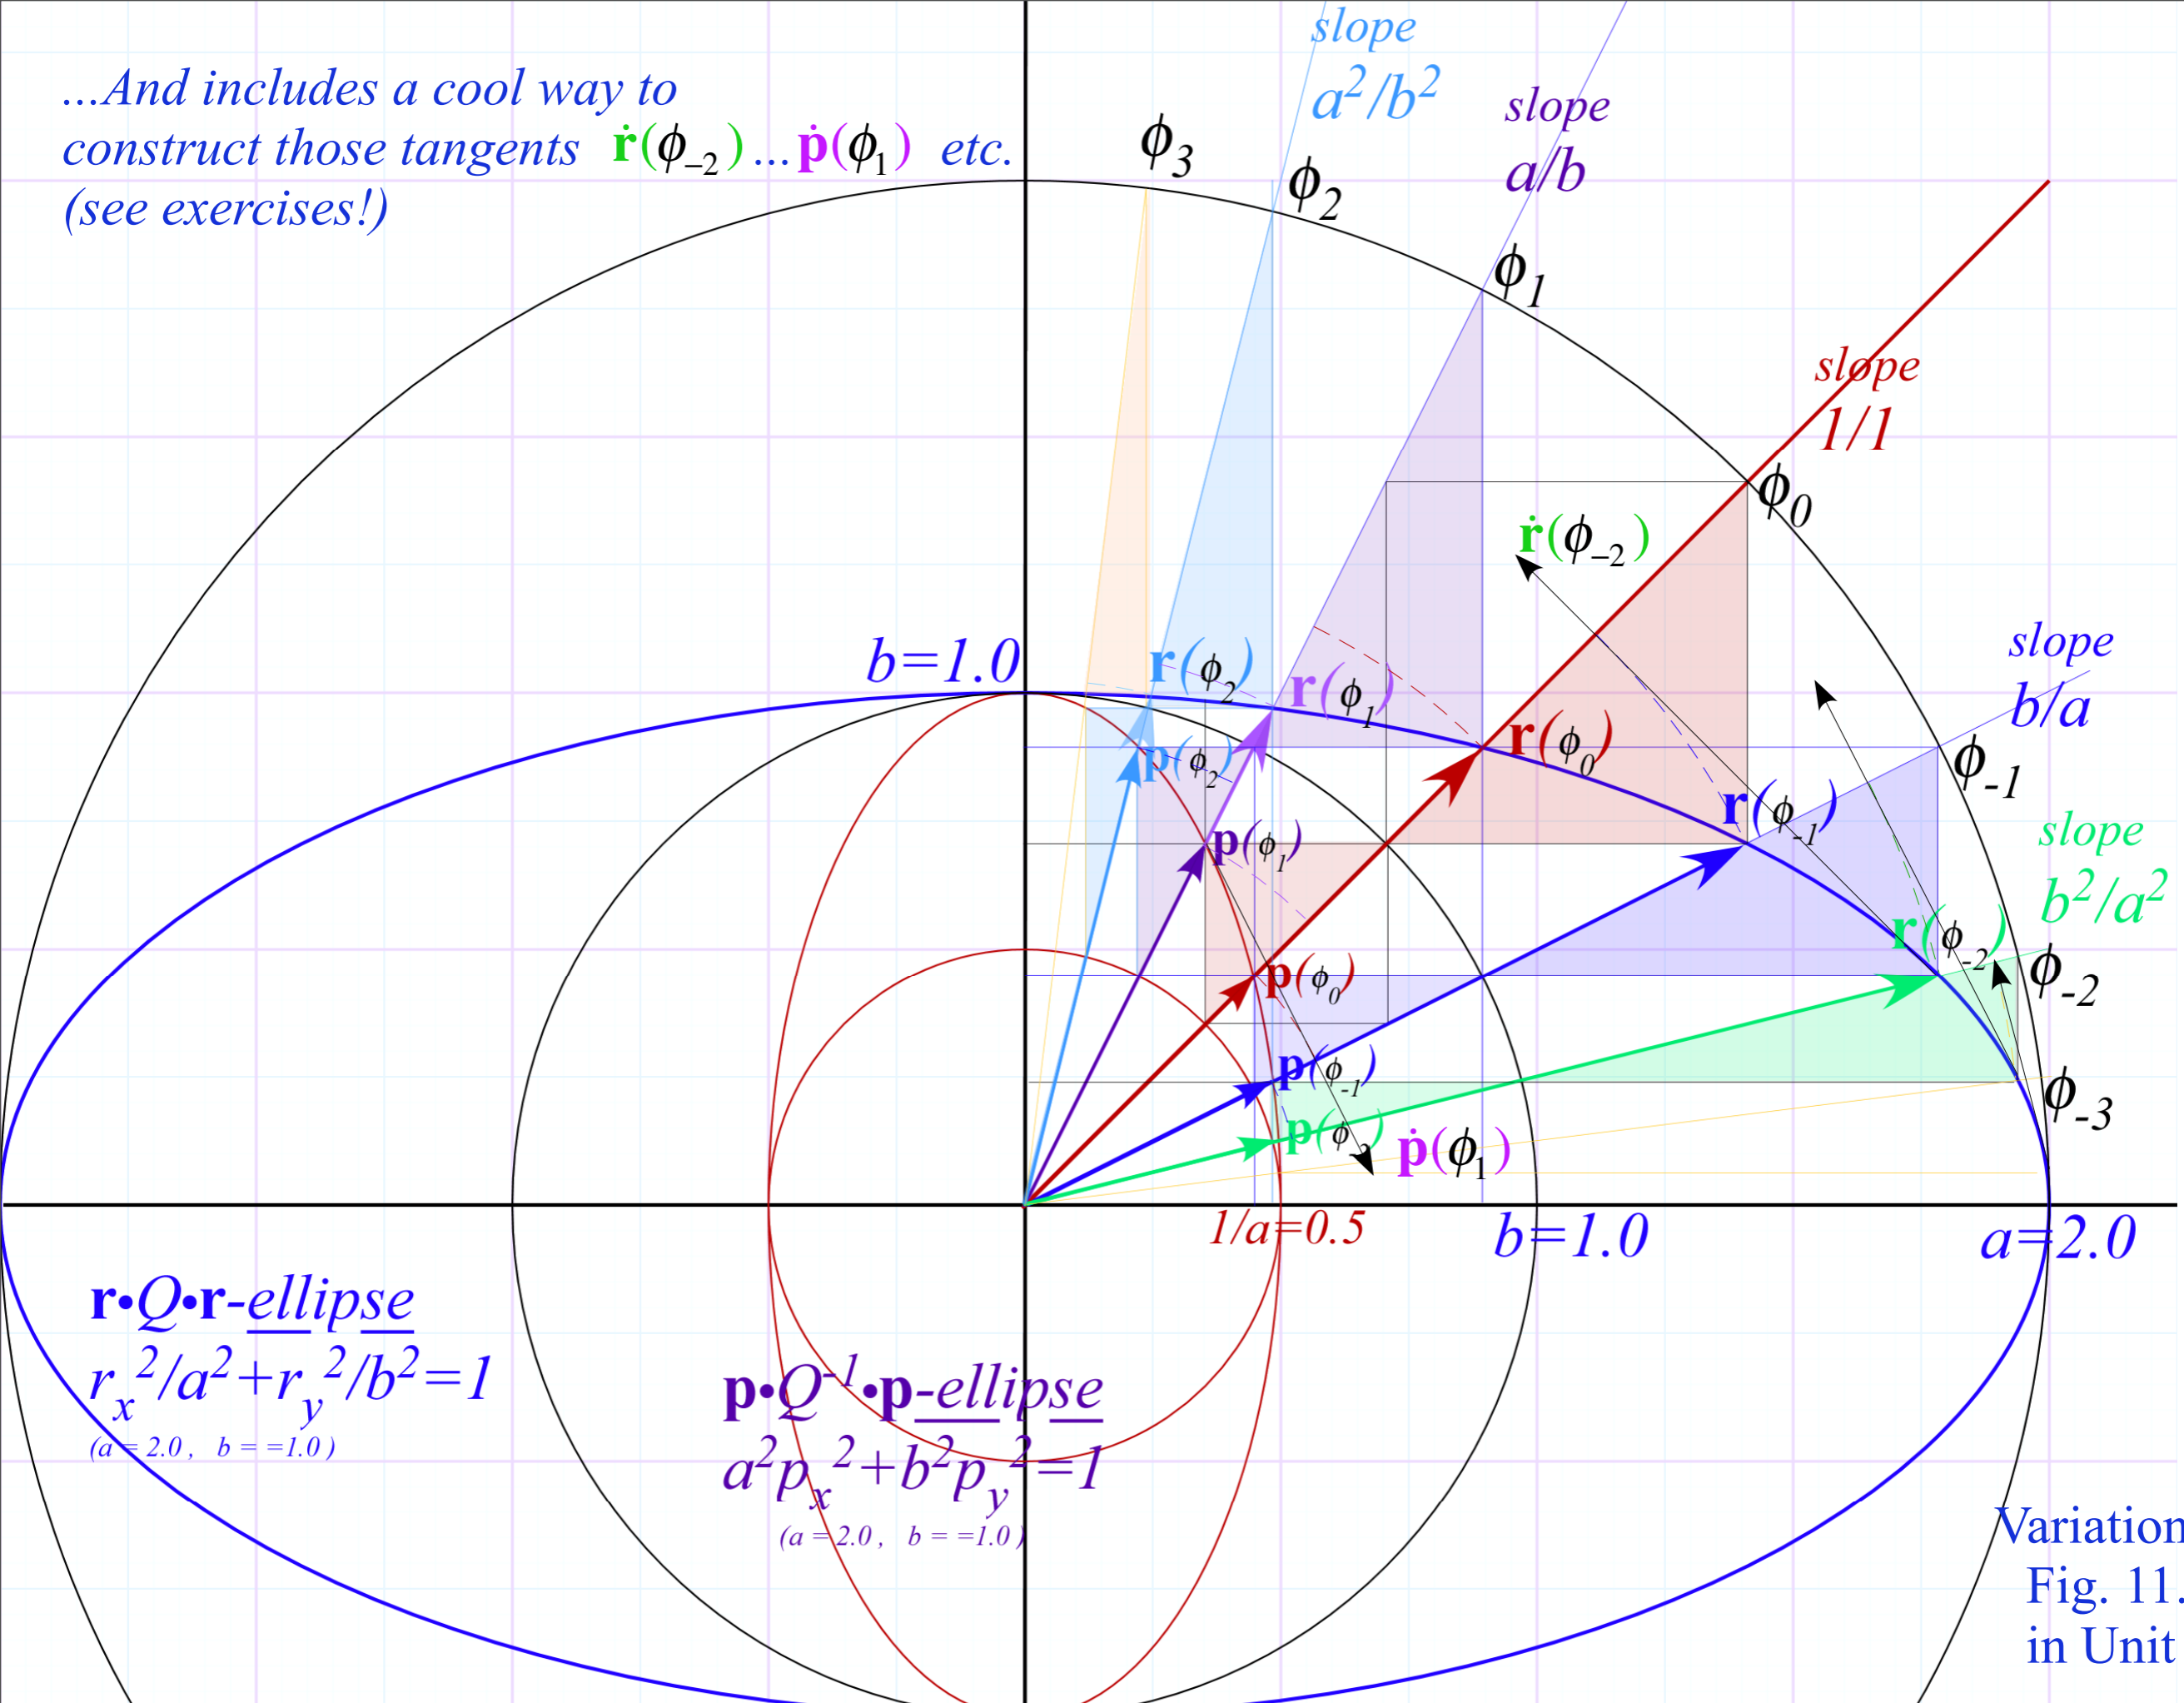 ...And includes a cool way to
construct those tangents ṙ(ϕ₋₂)...ṗ(ϕ₁) etc.
(see exercises!)
slope
a²/b²
slope
a/b
ϕ₃
ϕ₂
ϕ₁
slope
1/1
ϕ₀
ṙ(ϕ₋₂)
slope
b/a
b=1.0
r(ϕ₂)
r(ϕ₁)
r(ϕ₀)
p(ϕ₂)
ϕ₋₁
r(ϕ₋₁)
slope
b²/a²
p(ϕ₁)
r(ϕ₋₂)
ϕ₋₂
p(ϕ₀)
p(ϕ₋₁)
ϕ₋₃
p(ϕ₋₂)
ṗ(ϕ₁)
1/a=0.5
b=1.0
a=2.0
r•Q•r-ellipse
rₓ²/a²+r_y²/b²=1
(a = 2.0 , b = =1.0 )
p•Q⁻¹•p-ellipse
a²pₓ²+b²p_y²=1
(a = 2.0 , b = =1.0 )
Variation
Fig. 11.
in Unit